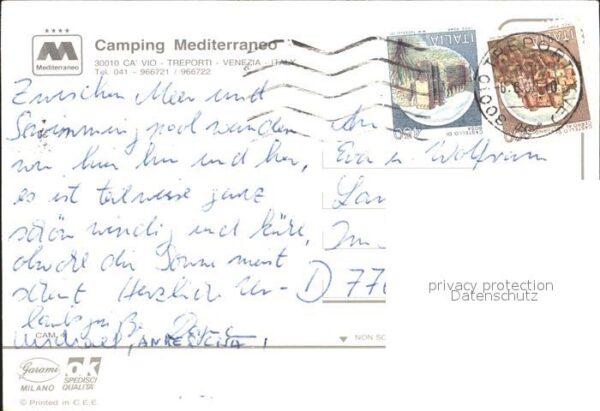 ★★★★
M
Mediterraneo
Camping Mediterraneo
30010 CA' VIO - TREPORTI - VENEZIA - ITALY
Tel. 041 - 966721 / 966722
ITALIA
450
CASTELLO DI BOSA
ITALIA
TREPORTI
30010
Zwischen Meer und
Swimming pool wandern
wir hin und her,
es ist teilweise ganz
schön windig und kühl,
obwohl die Sonne meist
scheint Herzliche Ur-
laubsgrüße
Michael,
An
Eva u. Wolfram
D 77
privacy protection
Datenschutz
CAM
NON SC
Garami
MILANO
ok
SPEDISCI
QUALITA'
© Printed in C.E.E.